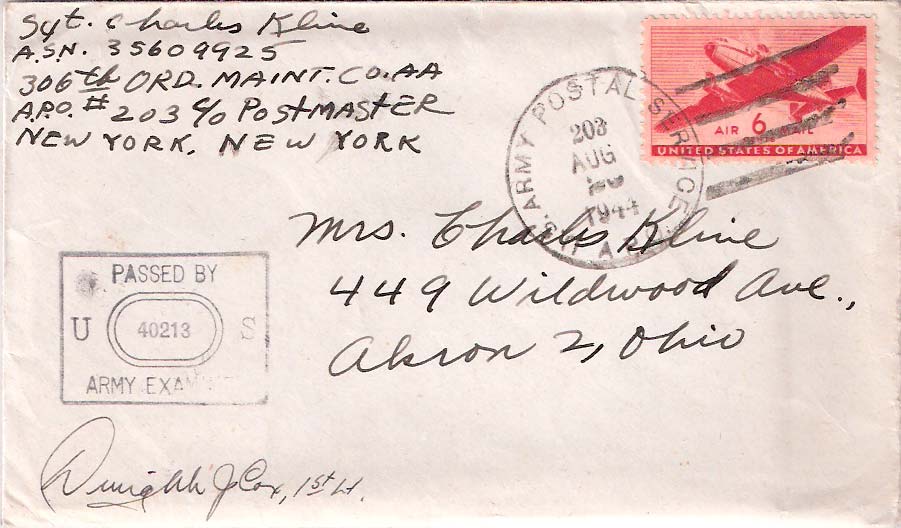 Sgt. Charles Kline
A.S.N. 35609925
306th ORD. MAINT. CO. AA
A.P.O. # 203 c/o POSTMASTER
NEW YORK, NEW YORK
ARMY POSTAL SERVICE
203
AUG
1944
A.P.O.
AIR 6 MAIL
UNITED STATES OF AMERICA
Mrs. Charles Kline
449 Wildwood Ave.,
Akron 2, Ohio
PASSED BY
U 40213 S
ARMY EXAMINER
Dwight J Cox, 1st Lt.